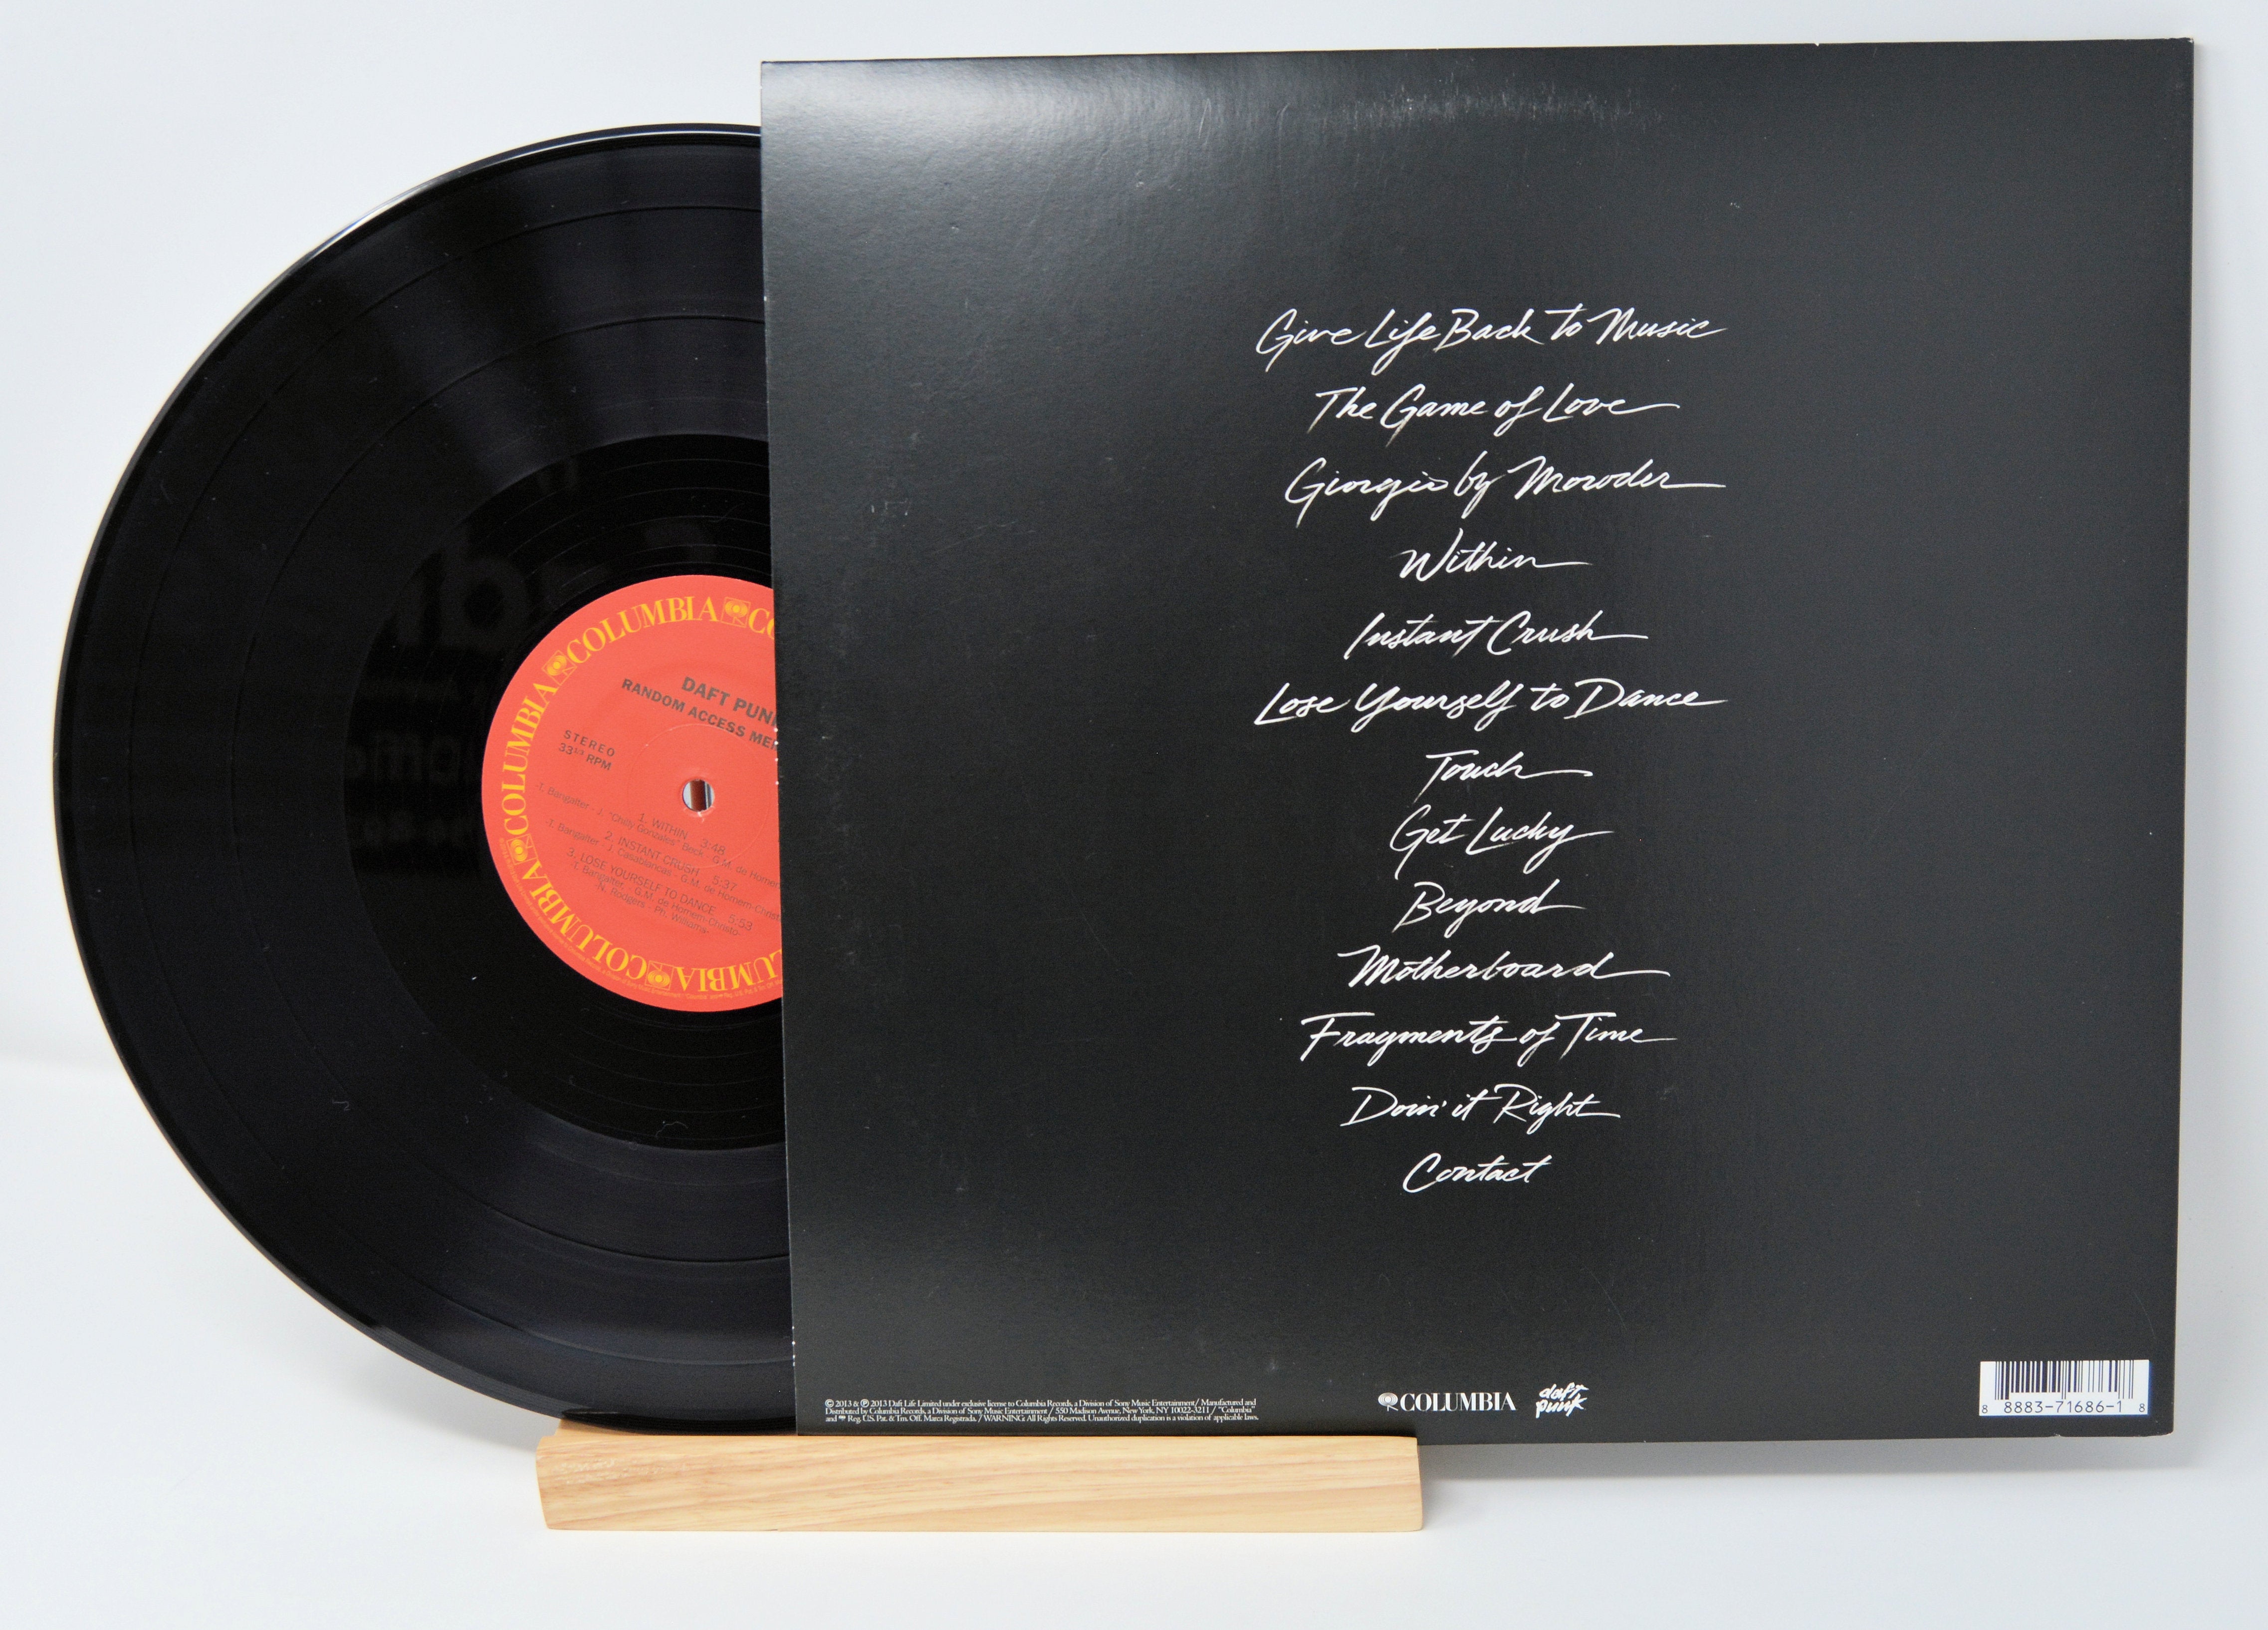 COLUMBIA COLUMBIA COLUMBIA COLUMBIA COLUMBIA
DAFT PUN
RANDOM ACCESS MEM
STEREO
33 1/3 RPM
1. WITHIN 3:48
-T. Bangalter - J. "Chilly Gonzales" Beck - G.M. de Homem
2. INSTANT CRUSH 5:37
-T. Bangalter - J. Casablancas - G.M. de Homem-Christo
3. LOSE YOURSELF TO DANCE 5:53
-T. Bangalter - G.M. de Homem-Christo
-N. Rodgers - Ph. Williams-
Give Life Back to Music
The Game of Love
Giorgio by Moroder
Within
Instant Crush
Lose Yourself to Dance
Touch
Get Lucky
Beyond
Motherboard
Fragments of Time
Doin' it Right
Contact
© 2013 & ℗ 2013 Daft Life Limited under exclusive license to Columbia Records, a Division of Sony Music Entertainment / Manufactured and
Distributed by Columbia Records, a Division of Sony Music Entertainment / 550 Madison Avenue, New York, NY 10022-3211 / "Columbia"
and Reg. U.S. Pat. & Tm. Off. Marca Registrada. / WARNING: All Rights Reserved. Unauthorized duplication is a violation of applicable laws.
COLUMBIA
daft punk
8 8883-71686-1 8